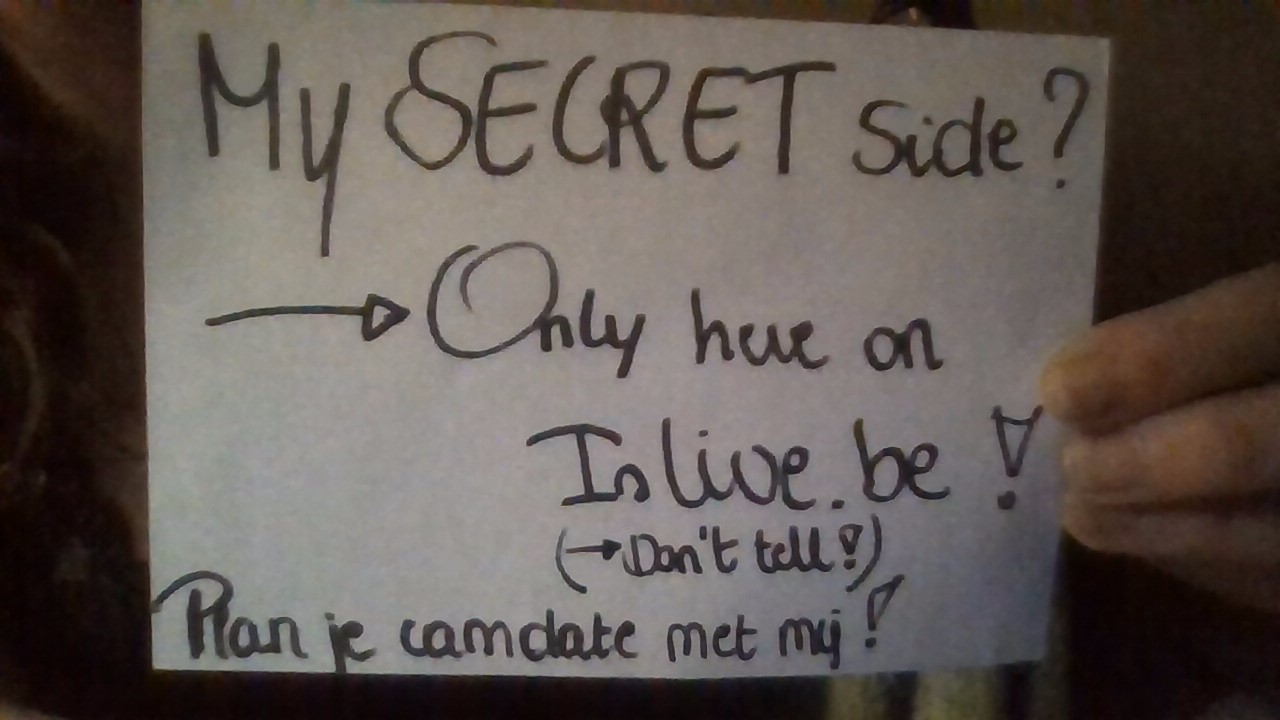 My SECRET side?
→ Only here on
Islive.be!
(→ Don't tell!)
Plan je camdate met mij!